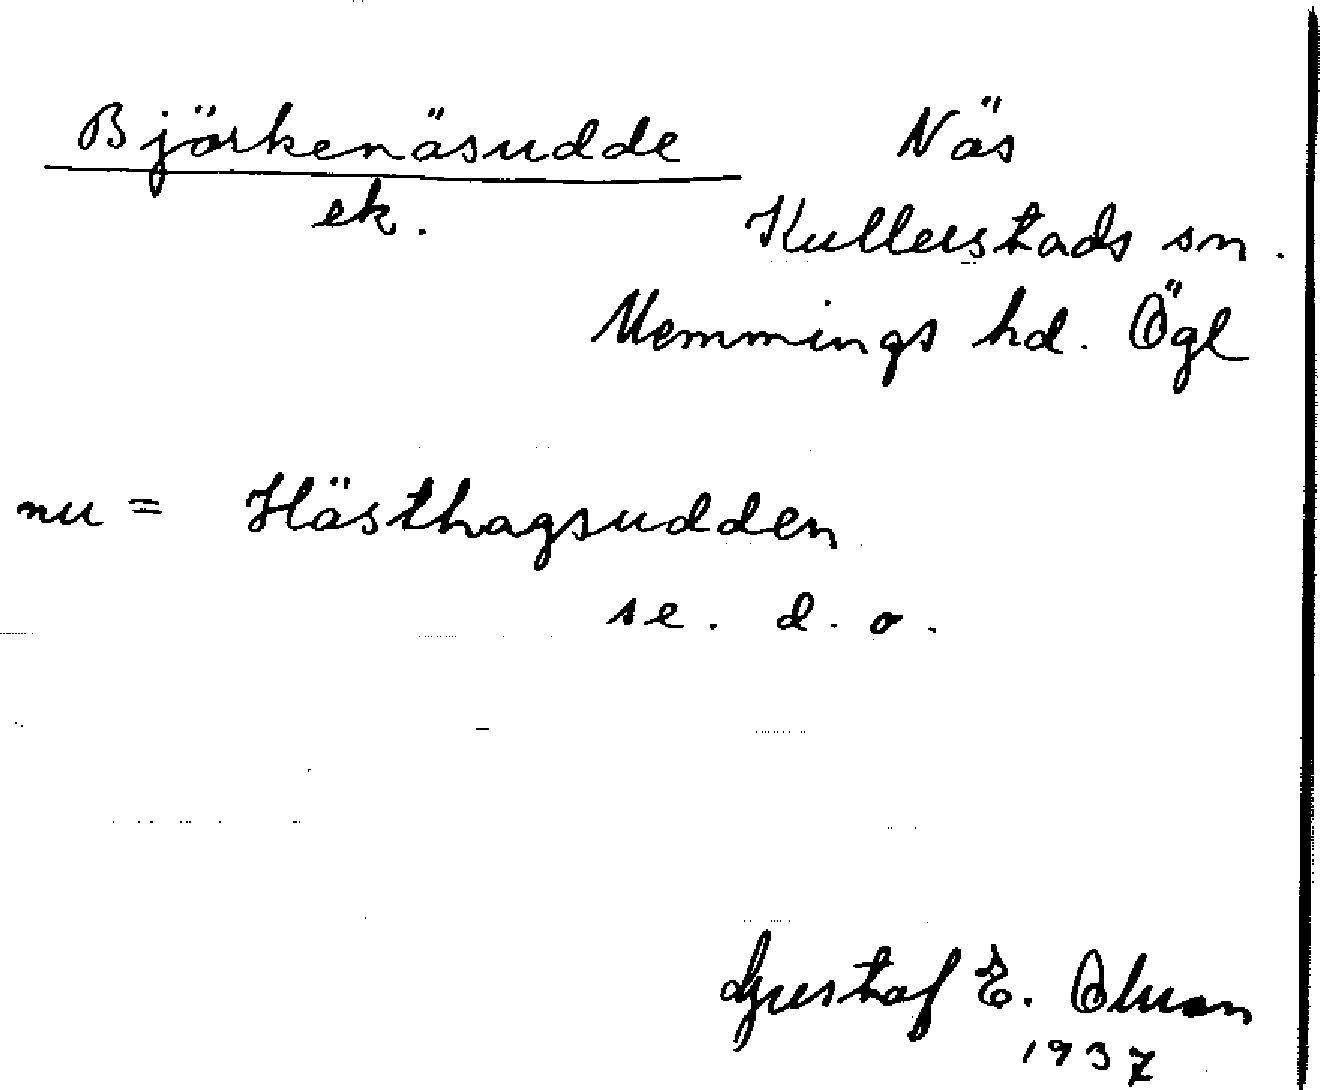 Björkenäsudde Näs
ek. Kullerstads sn.
Memmings hd. Ögl
nu = Hästhagsudden
se. d. o.
Gustaf E. Olsson
1937